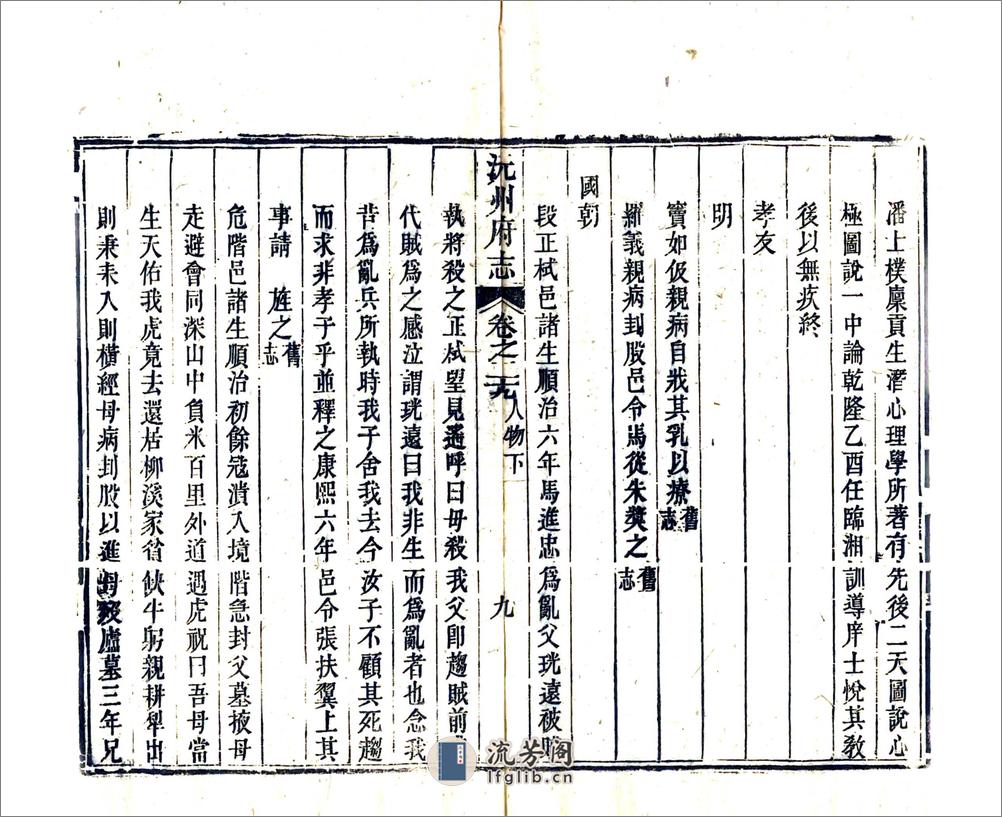 潘上樸廩貢生濳心理學所著有先後二天圖說心
極圖說一中論乾隆乙酉任臨湘訓導庠士悅其敎
後以無疾終
孝友
明
竇如伋親病自戕其乳以療舊志
羅義親病刲股邑令馬從朱奬之舊志
國朝
段正栻邑諸生順治六年馬進忠爲亂父珖遠被
沅州府志 卷之二十九 人物下 九
執將殺之正栻望見遙呼曰毋殺我父卽趨賊前
代賊爲之感泣謂珖遠曰我非生而爲亂者也念我
昔爲亂兵所執時我子舍我去今汝子不顧其死趨
而求非孝子乎並釋之康熙六年邑令張扶翼上其
事請 旌之舊志
危階邑諸生順治初餘寇潰入境階急封父墓掖母
走避會同深山中負米百里外道遇虎祝曰吾母當
生天佑我虎竟去還居柳溪家貧缺牛躬親耕犂出
則秉耒入則橫經母病刲股以進母歿廬墓三年兄
流芳阁
lfglib.cn